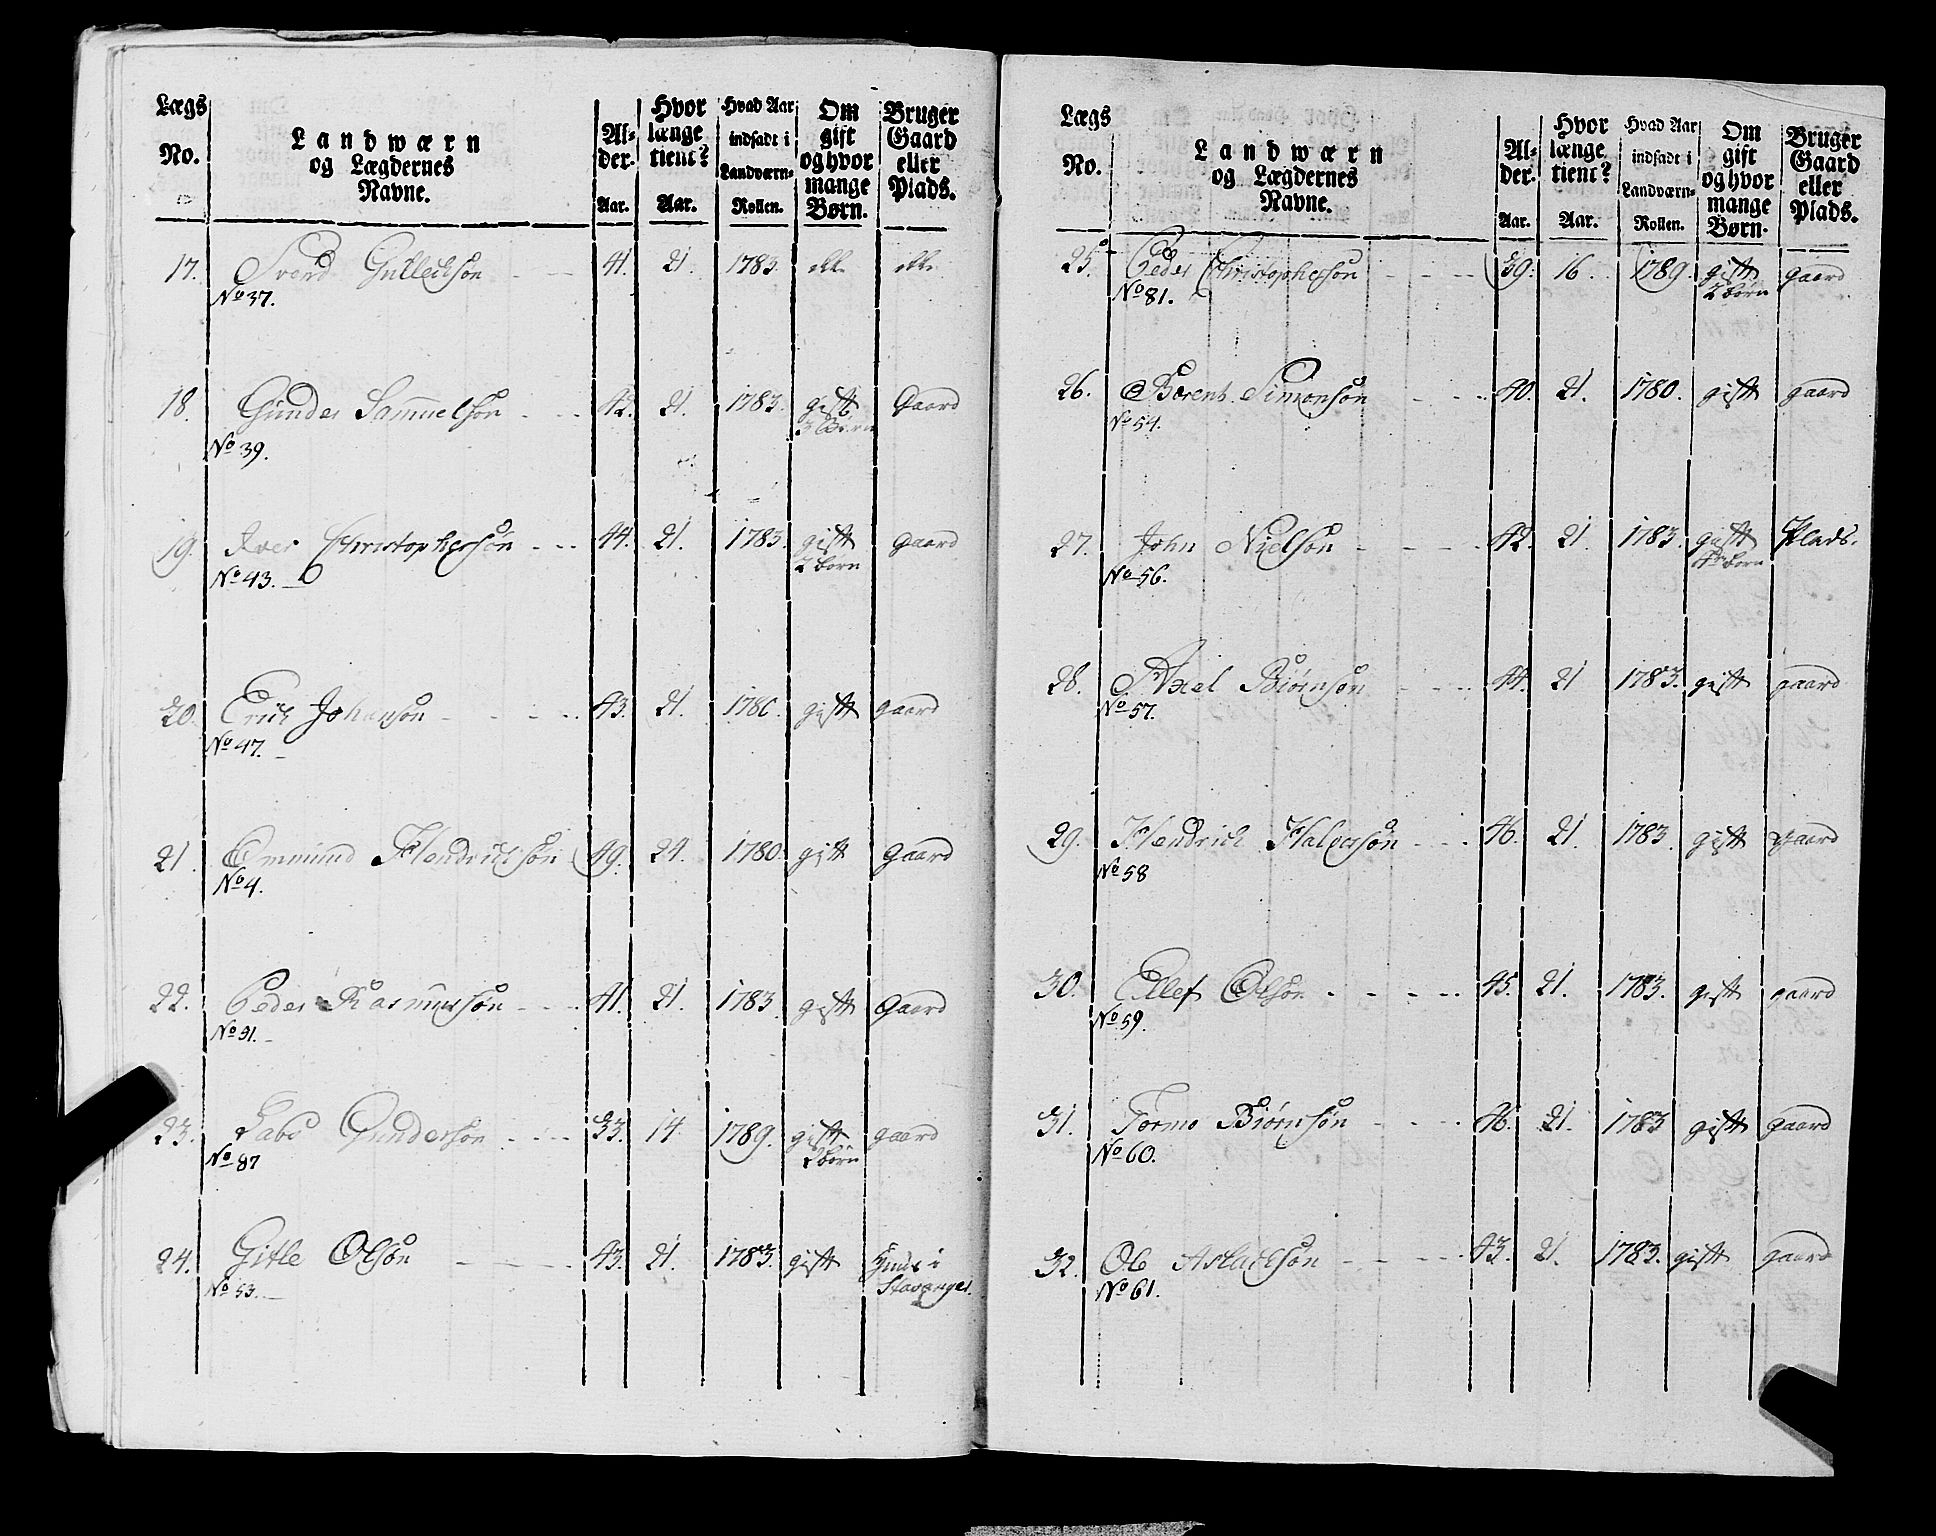 Lægs No. Landwærn og Lægdernes Navne. Alder. Aar. Hvor længe tient? Aar. Hvad Aar indsadt i Landværn-Rollen. Om gift og hvor mange Børn. Bruger Gaard eller Plads.
17. Sverd Gulleckson 41. 21. 1783. ikke ikke
No 37.
18. Gunder Samuelsøn 42. 21. 1783. gift Gaard
No 39. 3 Børn
19. Iver Christophersøn 44. 21. 1783. gift gaard
No 43. 2 børn
20. Erich Johansøn 43. 21. gift gaard
No 47.
21. Emmund Hendrichsøn 49. 24. 1780. gift gaard
No 4.
22. Peder Rasmussøn 41. 21. 1783. gift gaard
No 51.
23. Gundersøn 33. 14. 1789. gift gaard
No 87 2 børn
24. Gitle Olsøn 43. 21. 1783. gift Huus i
No 53. Stavanger.
Lægs No. Landwærn og Lægdernes Navne. Alder. Aar. Hvor længe tient? Aar. Hvad Aar indsadt i Landværn-Rollen. Om gift og hvor mange Børn. Bruger Gaard eller Plads.
25. Peder Christophersøn 39. 16. 1789. gift gaard
No 81. 2 børn
26. Berent Simonsøn 40. 21. 1780. gift gaard
No 54.
27. John Nielsøn 42. 21. 1783. gift Plads.
No 56. børn
28. Axel Biørnsøn 44. 21 1783. gift gaard
No 57.
29. Hendrich Halversøn 46. 21. 1783. gift gaard
No 58
30. Ellef Olsøn 45. 21. 1783. gift gaard
No 59.
31. Tormo Biørnsøn 46. 21. 1783 gift gaard
No 60.
32. Ole Aslacksøn 43. 21. 1783. gift gaard
No 61.